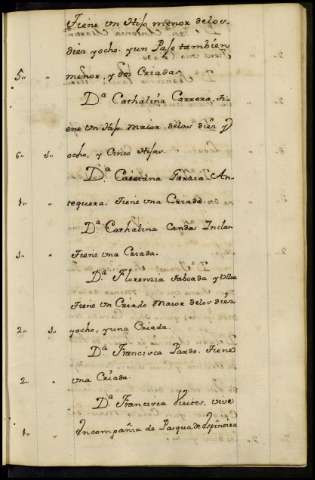 Tiene un Hijo menor de los
diez y ocho, y un Paje tambien
5 menor, y dos Criadas.
Dª Cathalina Carrera, ti-
ene un Hijo maior de los diez y
6 1 ocho, y Cinco Hijas.
Dª Caietana Garcia An-
1 tequera. Tiene una Criada.
Dª Cathalina Candas Inclan
1 Tiene una Criada.
Dª Florencia Taboada y Ulloa
Tiene un Criado Maior de los diez
2 1 y ocho, y una Criada.
Dª Francisca Pardo, Tiene
2 una Criada.
Dª Francisca Vieites, vive
1 Incompañia de Pasqua de